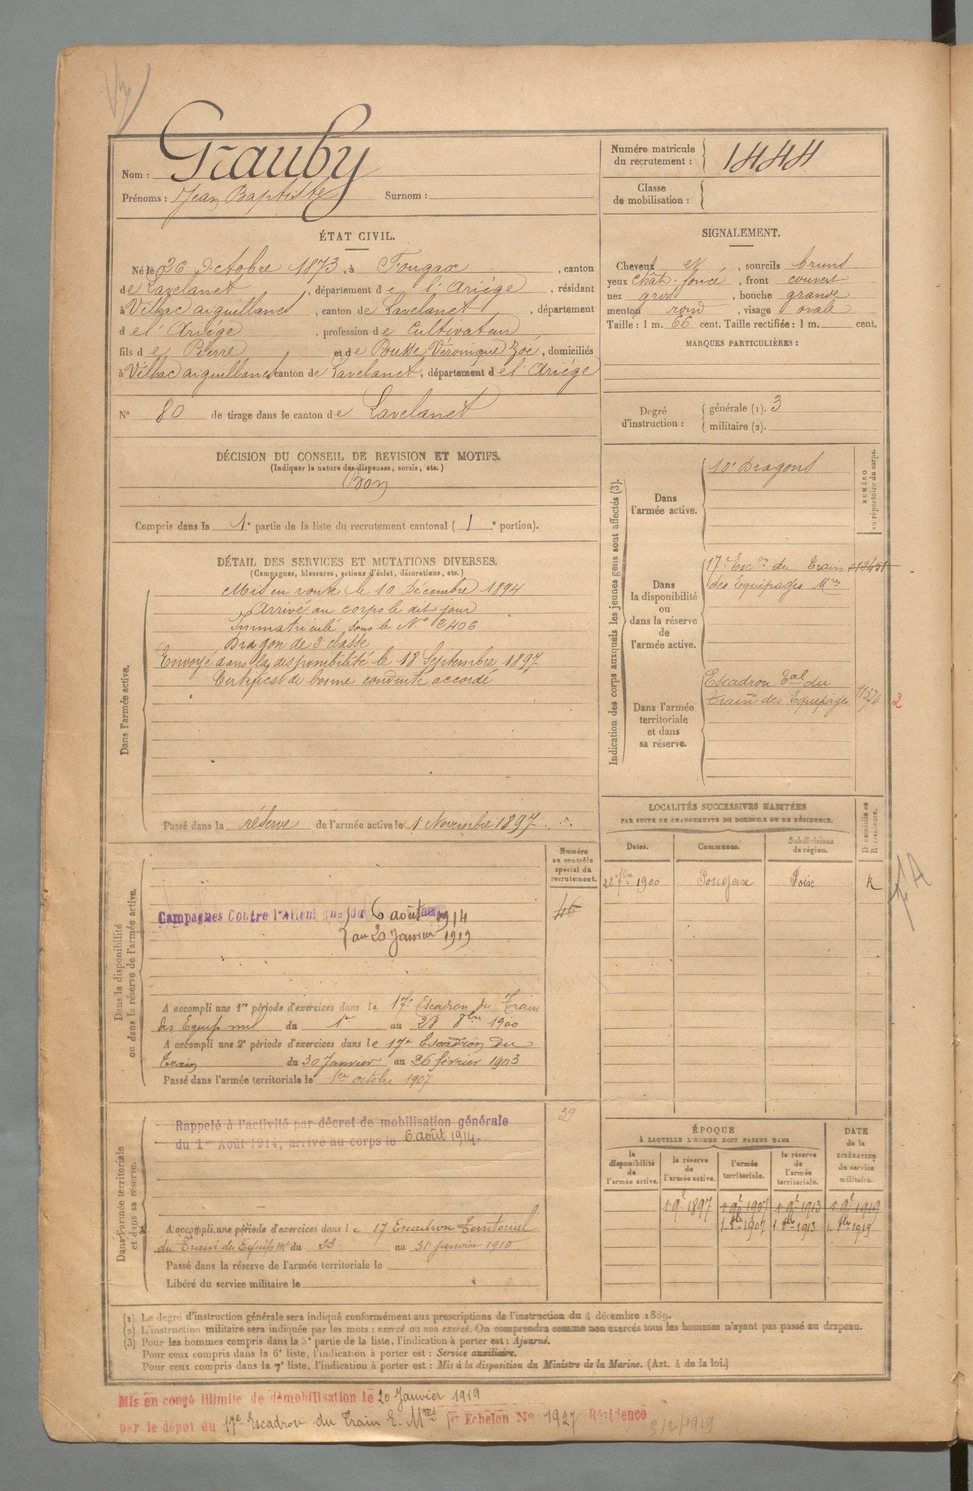 Nom : Grauby
Prénoms : Jean Baptiste Surnom :
Numéro matricule du recrutement : 1444
Classe de mobilisation :
ÉTAT CIVIL.
Né le 26 Octobre 1873, à Fougax, canton
de Lavelanet, département de l'Ariége, résidant
à Villac aiguillanes, canton de Lavelanet, département
de l'Ariége, profession de Cultivateur
fils de Pierre et de Boutte, Véronique Zoé, domiciliés
à Villac aiguillanes canton de Lavelanet, département de l'Ariége
N° 80 de tirage dans le canton de Lavelanet
SIGNALEMENT.
Cheveux et, sourcils bruns
yeux chât. foncé, front couvert
nez gros, bouche grande
menton rond, visage ovale
Taille : 1 m. 66 cent. Taille rectifiée : 1 m. cent.
MARQUES PARTICULIÈRES :
Degré d'instruction : générale (1). 3
militaire (2).
DÉCISION DU CONSEIL DE REVISION ET MOTIFS.
(Indiquer la nature des dispenses, sursis, etc.)
Bon
Compris dans la 1e partie de la liste du recrutement cantonal ( 1 e portion).
DÉTAIL DES SERVICES ET MUTATIONS DIVERSES.
(Campagnes, blessures, actions d'éclat, décorations, etc.)
Dans l'armée active.
Mis en route le 10 Décembre 1894
Arrivé au corps le dit jour
Immatriculé sous le N° 2406
Dragon de 2e classe
Envoyé dans la disponibilité le 18 Septembre 1897
Certificat de bonne conduite accordé
Passé dans la réserve de l'armée active le 1 Novembre 1897
Indication des corps auxquels les jeunes gens sont affectés (3).
NUMÉRO au répertoire du corps.
Dans l'armée active.
10e Dragons
Dans la disponibilité ou dans la réserve de l'armée active.
17e Esc on du Train
des Equipages Mres
Dans l'armée territoriale et dans sa réserve.
Escadron Eal du
Train des Equipages
2
LOCALITÉS SUCCESSIVES HABITÉES
PAR SUITE DE CHANGEMENTS DE DOMICILE OU DE RÉSIDENCE.
Dates. Communes. Subdivisions de région. D domicile ou R résidence.
22 7bre 1900 Fougax Foix R
Dans la disponibilité ou dans la réserve de l'armée active.
Numéro au contrôle spécial du recrutement.
Campagnes Contre l'Allemagne du 6 août 1914
au 20 Janvier 1919
A accompli une 1re période d'exercices dans le 17e Escadron du Train
des Equip mil du 1er au 28 8bre 1900
A accompli une 2e période d'exercices dans le 17e Escadron du
Train du 30 Janvier au 26 février 1903
Passé dans l'armée territoriale le 1er octobre 1907
Dans l'armée territoriale et dans sa réserve.
39
Rappelé à l'activité par décret de mobilisation générale
du 1er Août 1914, arrivé au corps le 6 août 1914.
A accompli une période d'exercices dans le 17 Escadron Territorial
du Train des Equip. Mres du 23 au 31 janvier 1910
Passé dans la réserve de l'armée territoriale le
Libéré du service militaire le
ÉPOQUE
À LAQUELLE L'HOMME DOIT PASSER DANS
DATE de la LIBÉRATION du service militaire.
la disponibilité de l'armée active. la réserve de l'armée active. l'armée territoriale. la réserve de l'armée territoriale.
1 9e 1897 1 9e 1907 1 9e 1913 1 9e 1919
1 8bre 1907 1 8bre 1913 1 8bre 1919
(1) Le degré d'instruction générale sera indiqué conformément aux prescriptions de l'instruction du 4 décembre 1889.
(2) L'instruction militaire sera indiquée par les mots : exercé ou non exercé. On comprendra comme non exercés tous les hommes n'ayant pas passé au drapeau.
(3) Pour les hommes compris dans la 5e partie de la liste, l'indication à porter est : Ajourné.
Pour ceux compris dans la 6e liste, l'indication à porter est : Service auxiliaire.
Pour ceux compris dans la 7e liste, l'indication à porter est : Mis à la disposition du Ministre de la Marine. (Art. 4 de la loi.)
Mis en congé illimité de démobilisation le 20 Janvier 1919
par le dépôt du 17e Escadron du Train E. Mres 1er Echelon N° 1927 Résidence